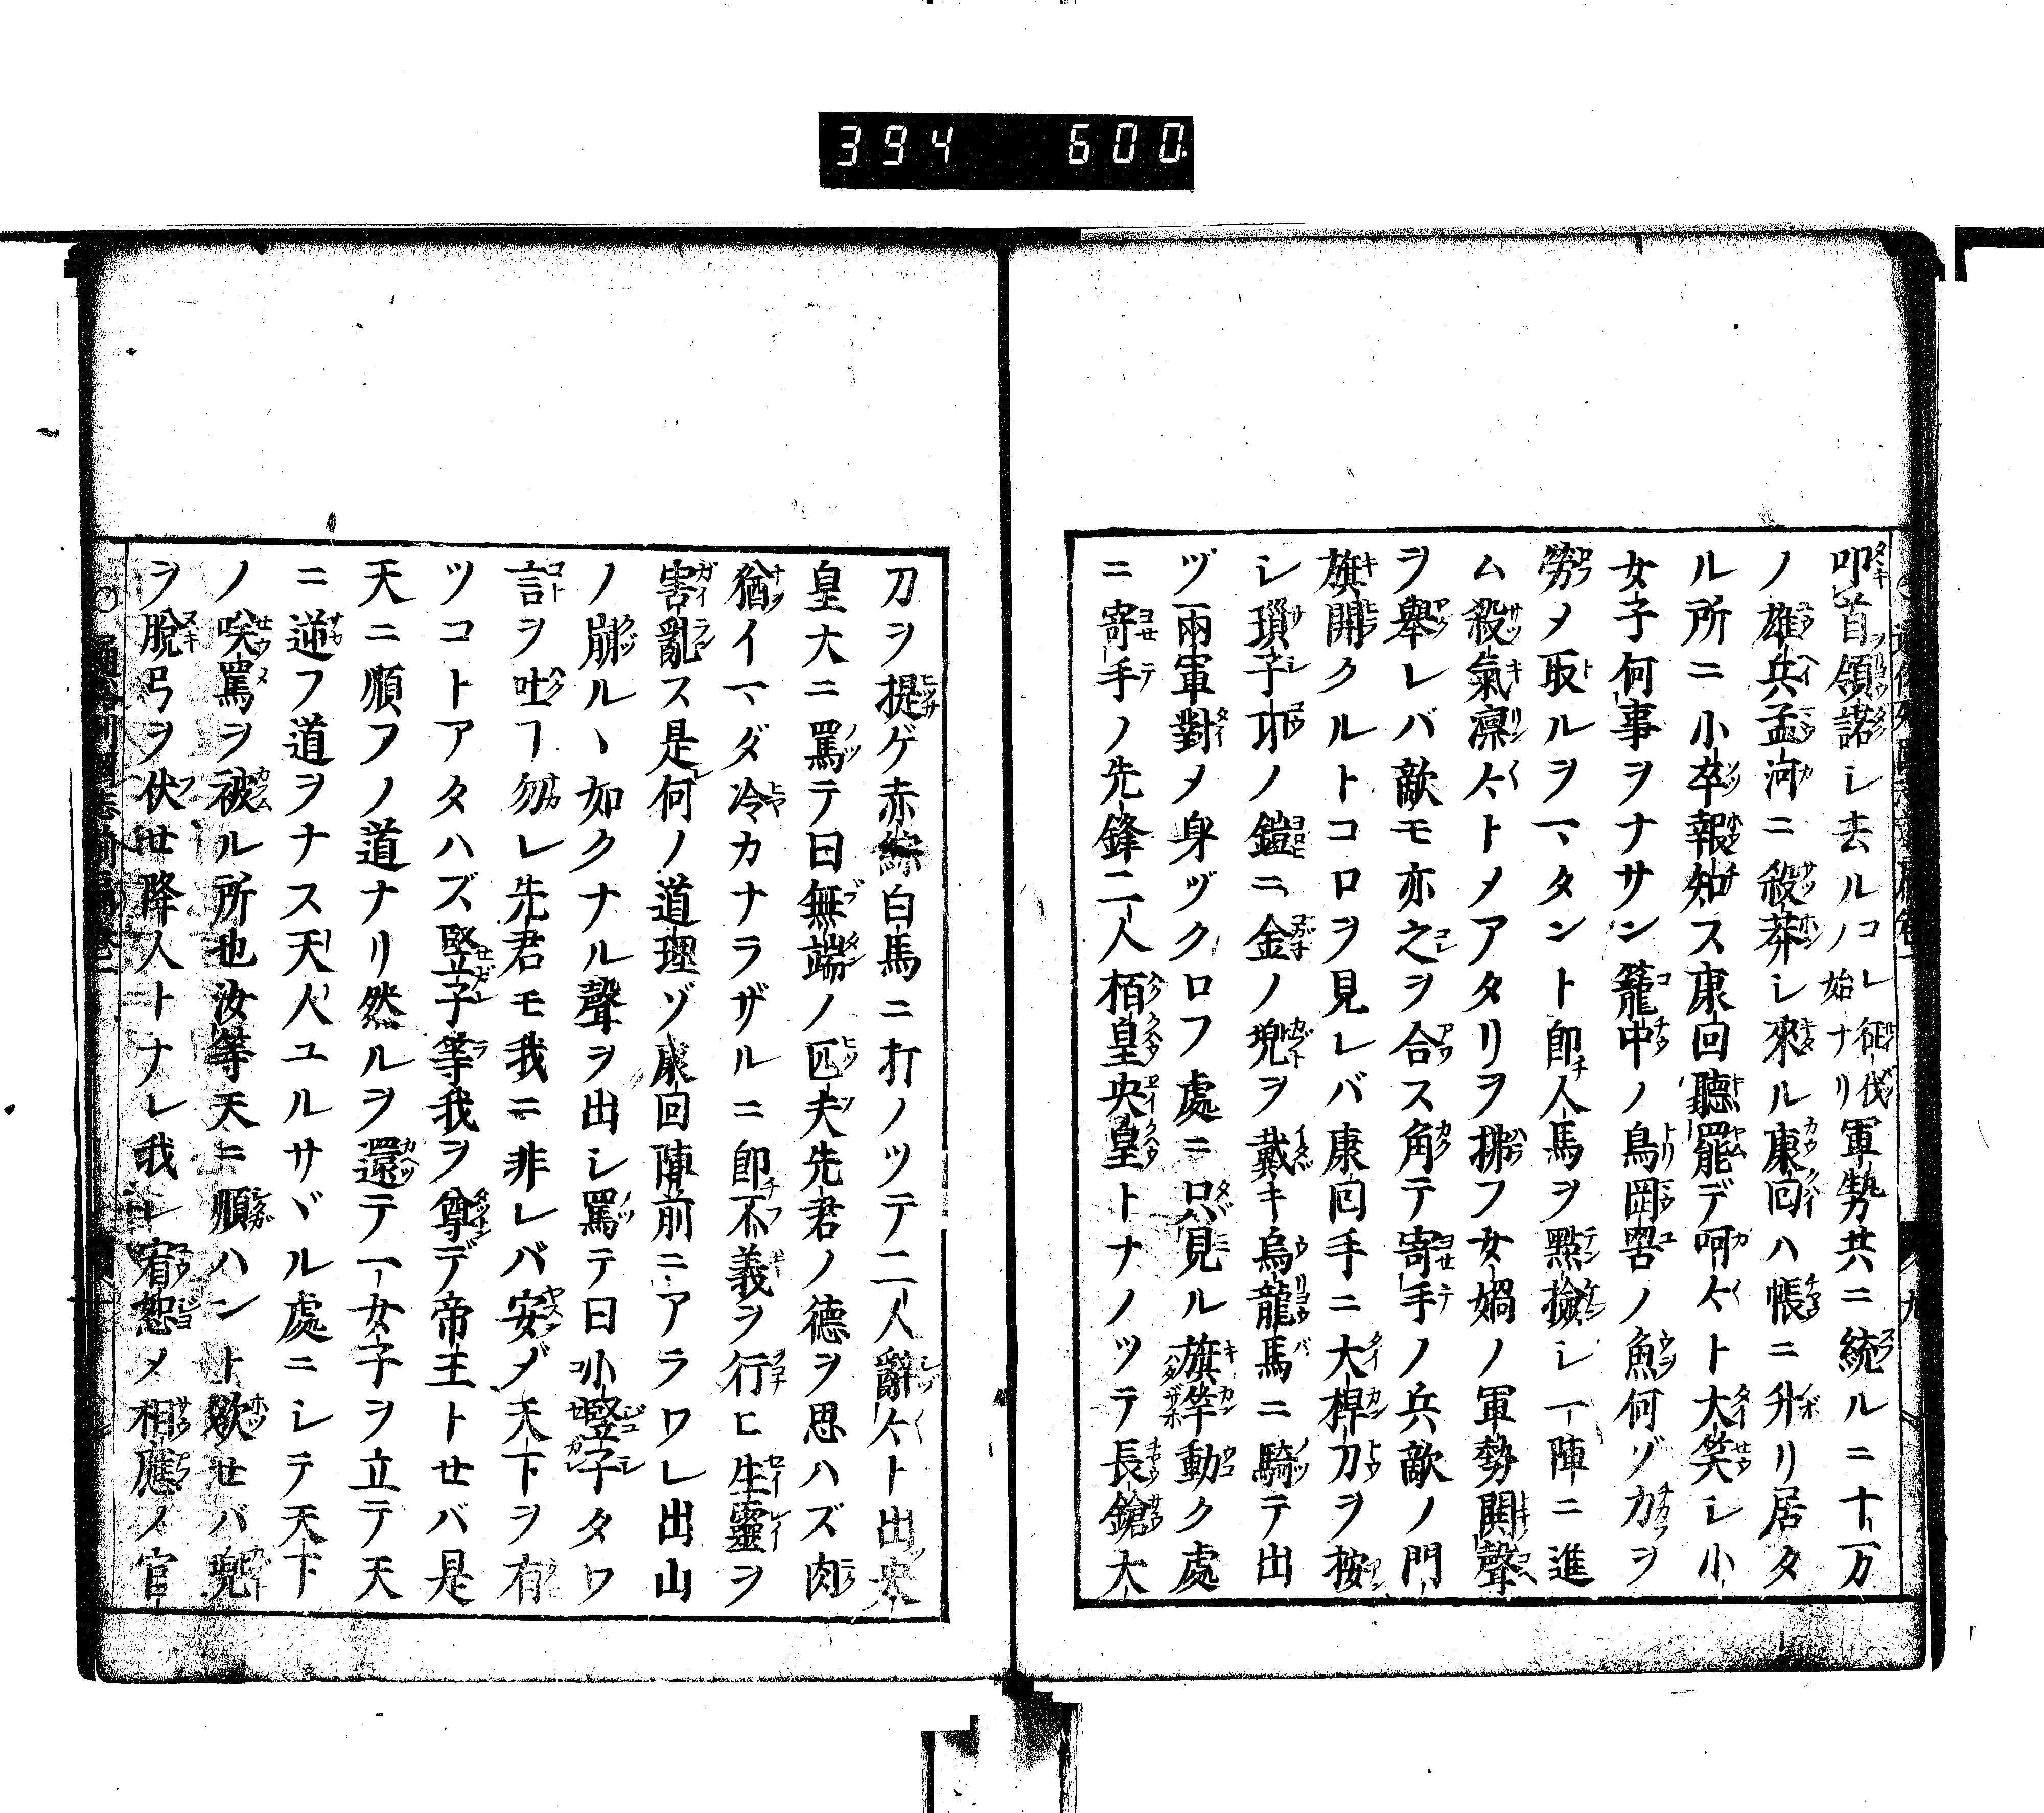 394 600
叩首領諾シ去ルコレ征伐ノ始ナリ軍勢共ニ統ルニ十一万
ノ雄兵孟河ニ殺莽シ來ル康回ハ帳ニ升リ居タ
ル所ニ小卒報知ス康回聽罷デ呵々ト大笑シ小
女子何事ヲナサン籠中ノ鳥罔罟ノ魚何ゾ力ヲ
勞メ取ルヲマタント即人馬ヲ點撿シ一陣ニ進
ム殺氣凛々トメアタリヲ拂フ女媧ノ軍勢鬨聲
ヲ舉レバ敵モ亦之ヲ合ス角テ寄手ノ兵敵ノ門
旗開クルトコロヲ見レバ康回手ニ大桿刀ヲ按
シ瑣子功ノ鎧ニ金ノ兜ヲ戴キ烏龍馬ニ騎テ出
ヅ兩軍對メ身ヅクロフ處ニ只見ル旗竿動ク處
ニ寄手ノ先鋒二人栢皇央皇トナノツテ長鎗大
刀ヲ提ゲ赤綜白馬ニ打ノツテ二人辭々ト出來
皇大ニ罵テ曰無端ノ匹夫先君ノ德ヲ思ハズ肉
猶イマダ冷カナラザルニ即不義ヲ行ヒ生靈ヲ
害亂ス是何ノ道理ゾ康回陣前ニアラワレ出山
ノ崩ルヽ如クナル聲ヲ出シ罵テ曰小豎子タワ
言ヲ吐ヿ勿レ先君モ我ニ非レバ安ゾ天下ヲ有
ツコトアタハズ豎子等我ヲ尊デ帝王トせバ是
天ニ順フノ道ナリ然ルヲ還テ一女子ヲ立テ天
ニ逆フ道ヲナス天人ユルサヾル處ニシテ天下
ノ咲罵ヲ被ル所也汝等天ニ順ハント欲せバ兜
ヲ脫弓ヲ伏せ降人トナレ我レ宥恕メ相應ノ官